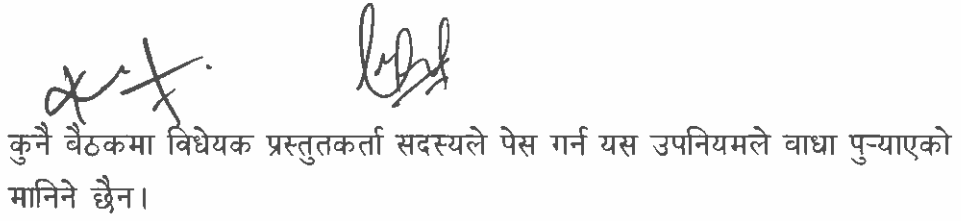 कुनै बैठकमा विधेयक प्रस्तुतकर्ता सदस्यले पेस गर्न यस उपनियमले वाधा पुऱ्याएको
मानिने छैन।